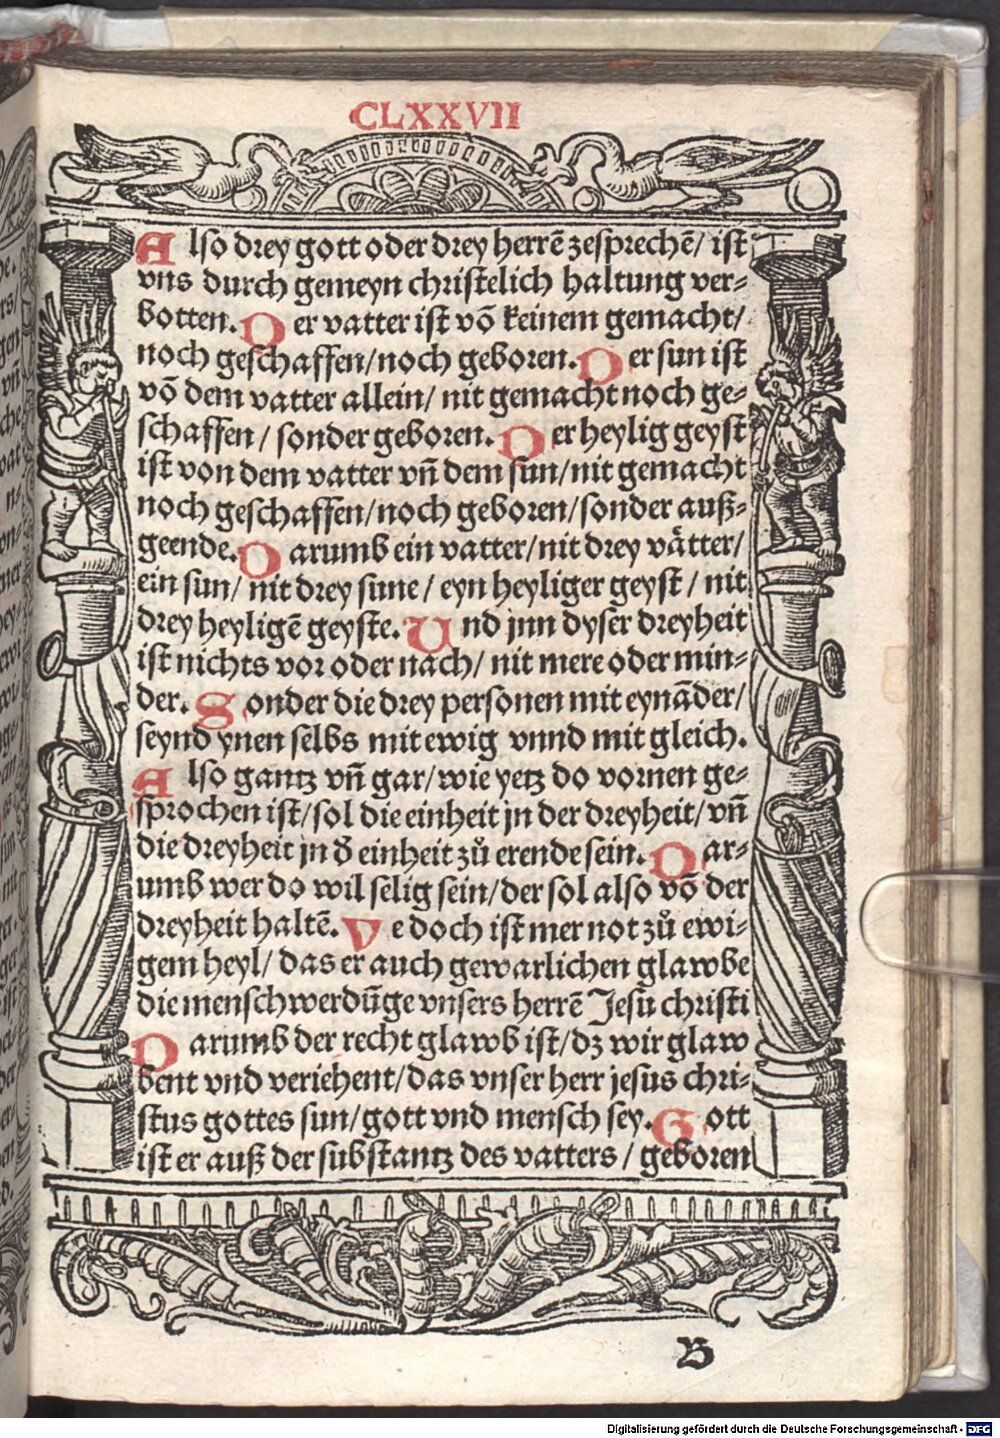 CLXXVII
Also drey gott oder drey herrē zesprechē/ ist
vns durch gemeyn christelich haltung ver-
botten. Der vatter ist vō keinem gemacht/
noch geschaffen/noch geboren. Der sun ist
vō dem vatter allein/ nit gemacht noch ge-
schaffen/ sonder geboren. Der heylig geyst
ist von dem vatter vñ dem sun/nit gemacht
noch geschaffen/noch geboren/sonder auß-
geende. Darumb ein vatter/nit drey vätter/
ein sun/ nit drey sune/ eyn heyliger geyst/ nit
drey heyligē geyste. Und jnn dyser dreyheit
ist nichts vor oder nach/ nit mere oder min-
der. Sonder die drey personen mit eynāder/
seynd ynen selbs mit ewig vnnd mit gleich.
Also gantz vñ gar/wie yetz do vornen ge-
sprochen ist/sol die einheit jn der dreyheit/vñ
die dreyheit jn d̄ einheit zů erende sein. Dar-
umb wer do wil selig sein/der sol also vō der
dreyheit haltē. Ye doch ist mer not zů ewi-
gem heyl/ das er auch gewarlichen glawbe
die menschwerdūge vnsers herrē Jesu christi
Darumb der recht glawb ist/dz wir glaw
bent vnd veriehent/das vnser herr jesus chri-
stus gottes sun/gott vnd mensch sey. Gott
ist er auß der substantz des vatters/ geboren
B
Digitalisierung gefördert durch die Deutsche Forschungsgemeinschaft - DFG